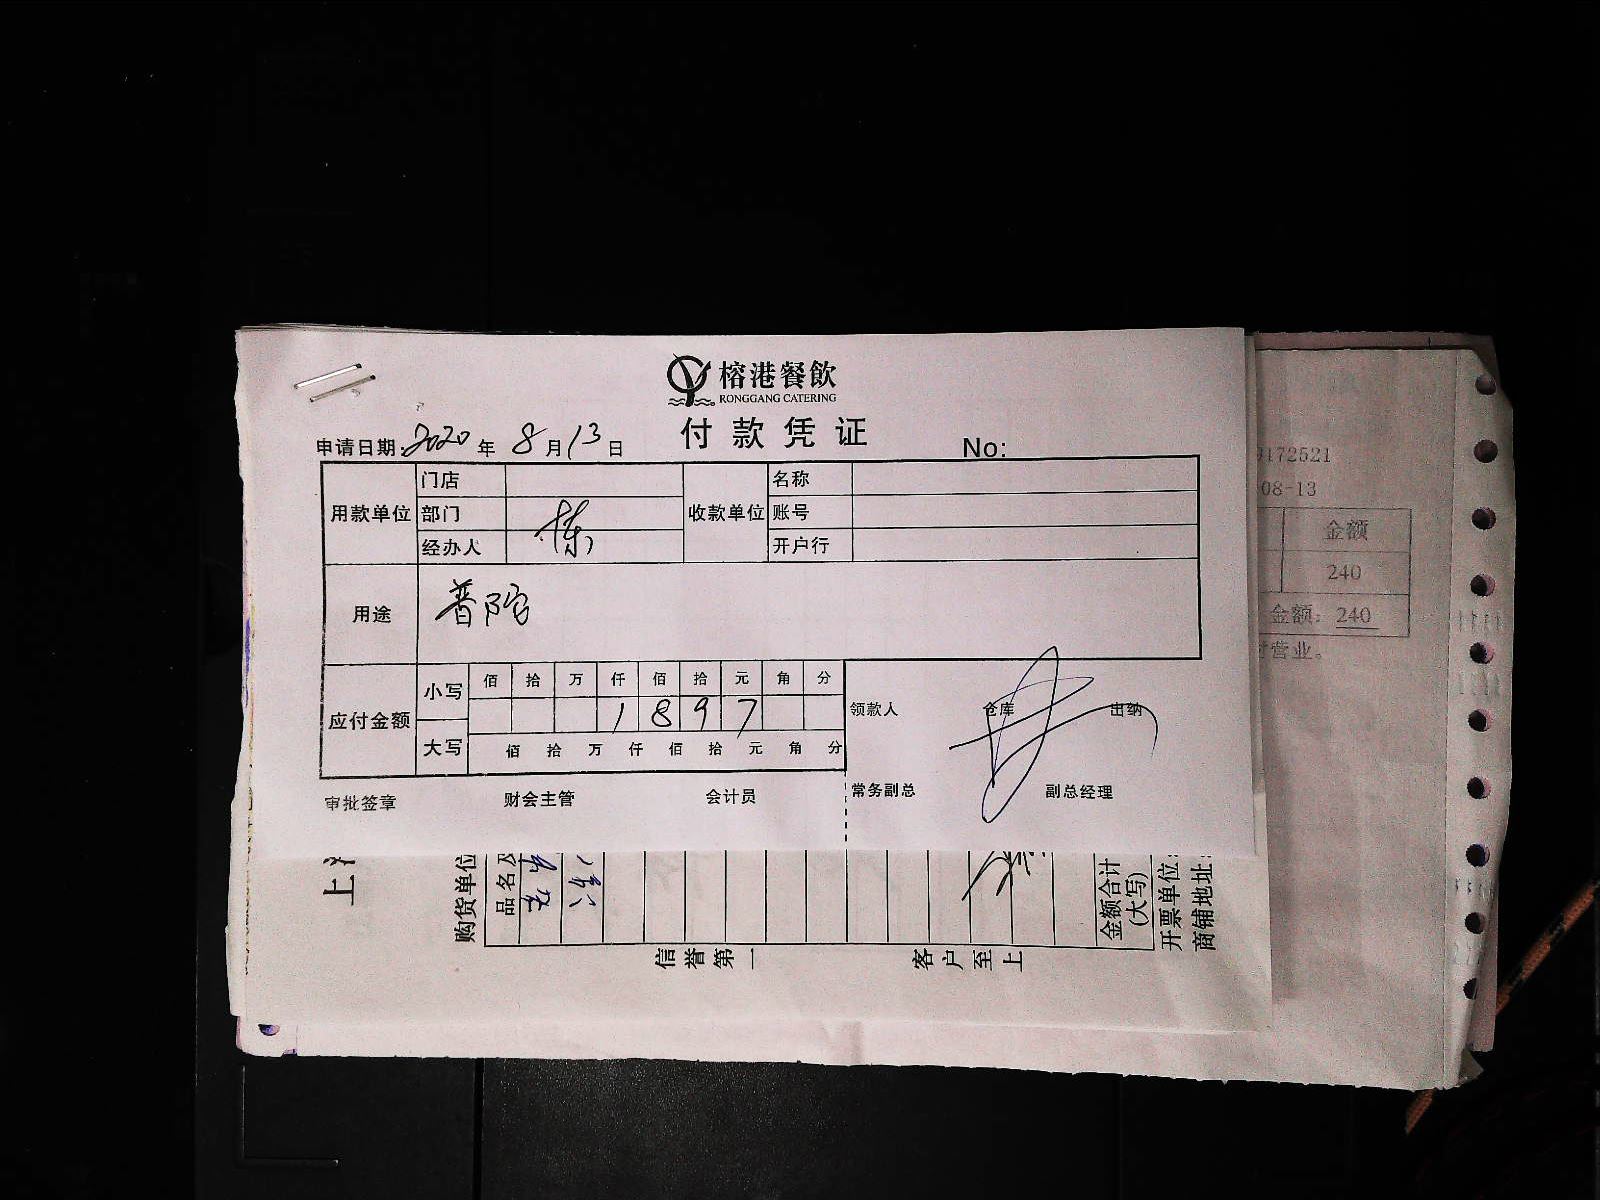 榕港餐飲
RONGGANG CATERING
付款凭证
申请日期:2020年8月13日 No:
用款单位 门店 收款单位 名称
部门 账号
经办人 开户行
用途 普陀
应付金额 小写 佰 拾 万 仟 佰 拾 元 角 分
1 8 9 7
大写 佰 拾 万 仟 佰 拾 元 角 分
领款人 仓库 出纳
常务副总 副总经理
审批签章 财会主管 会计员
上
购货单位
品名及
金额合计
(大写)
开票单位:
商铺地址:
信誉第一 客户至上
172521
08-13
金额
240
金额: 240
营业。